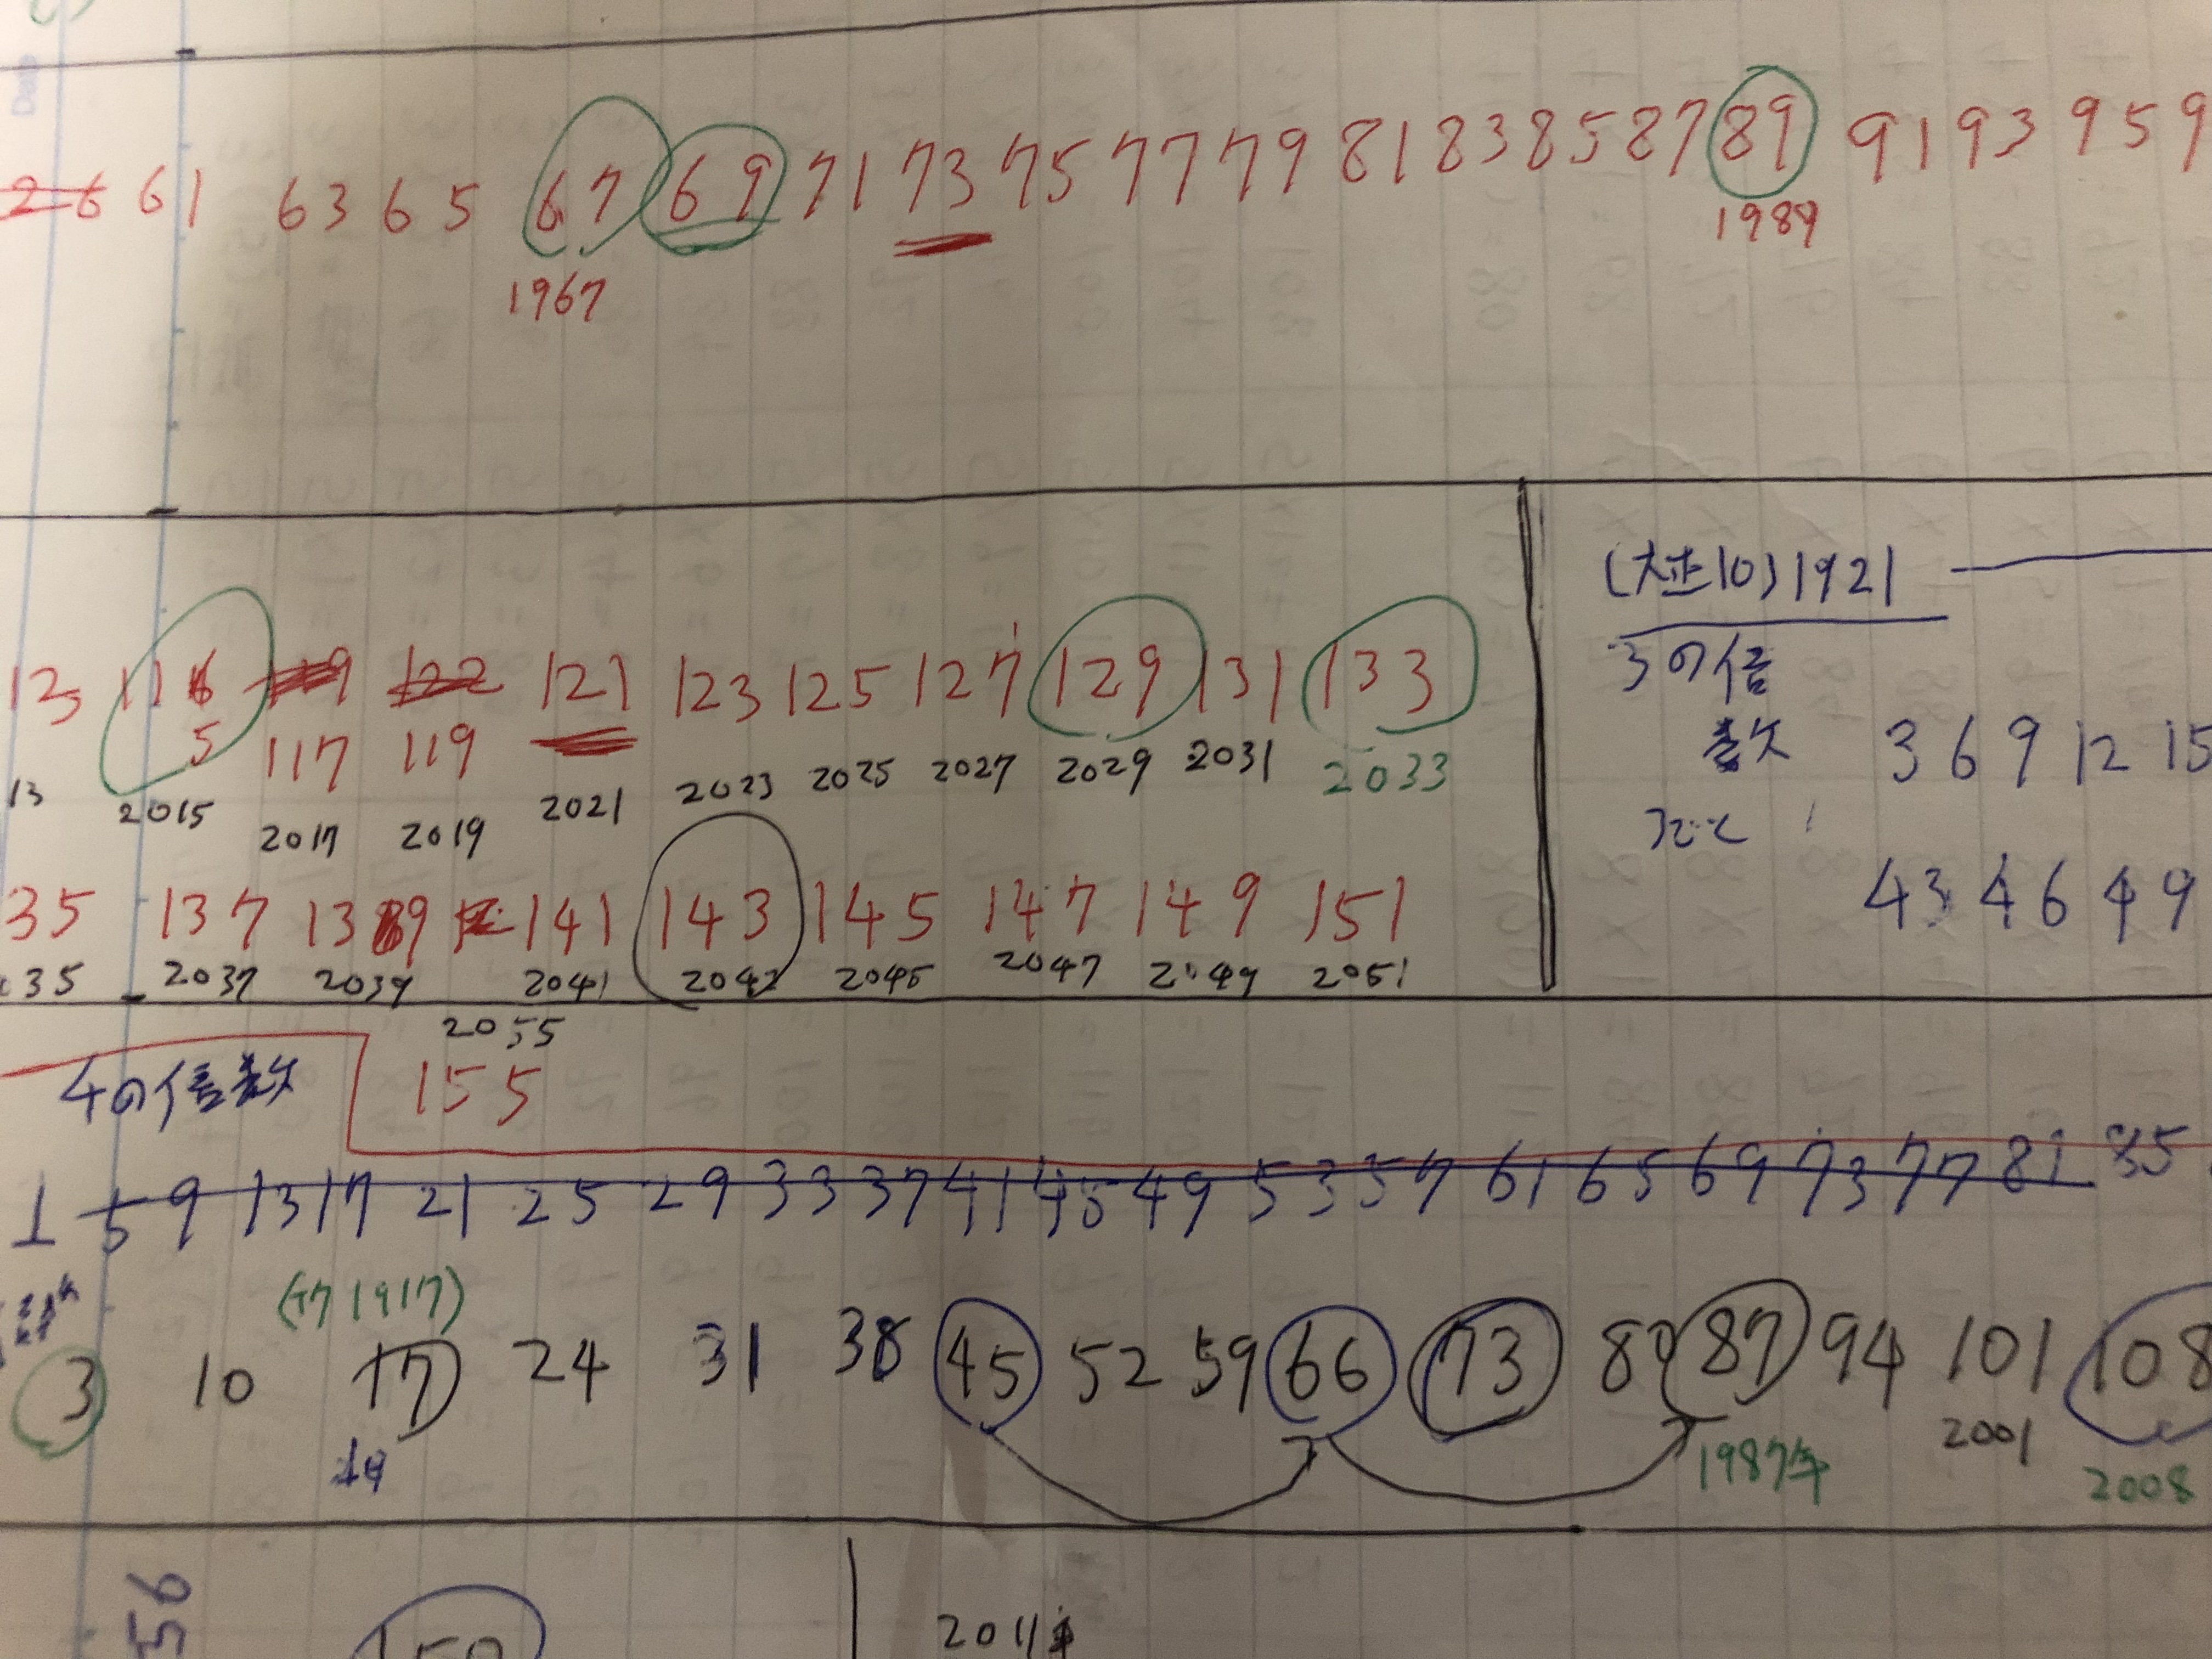 26 61 63 65 67 69 71 73 75 77 79 81 83 85 87 89 91 93 95 9
1967 1989
116 119 122 121 123 125 127 129 131 133
5 117 119
13 2015 2017 2019 2021 2023 2025 2027 2029 2031 2033
35 137 139 141 143 145 147 149 151
35 2037 2039 2041 2043 2045 2047 2049 2051
(大正10)1921
3の倍
数 3 6 9 12 15
43 46 49
2055
4の倍数 155
1 5 9 13 17 21 25 29 33 37 41 45 49 53 57 61 65 69 73 77 81 85
(サ7 1917)
3 10 17 24 31 38 45 52 59 66 73 80 87 94 101 108
1987年 2001 2008
56
150
2011